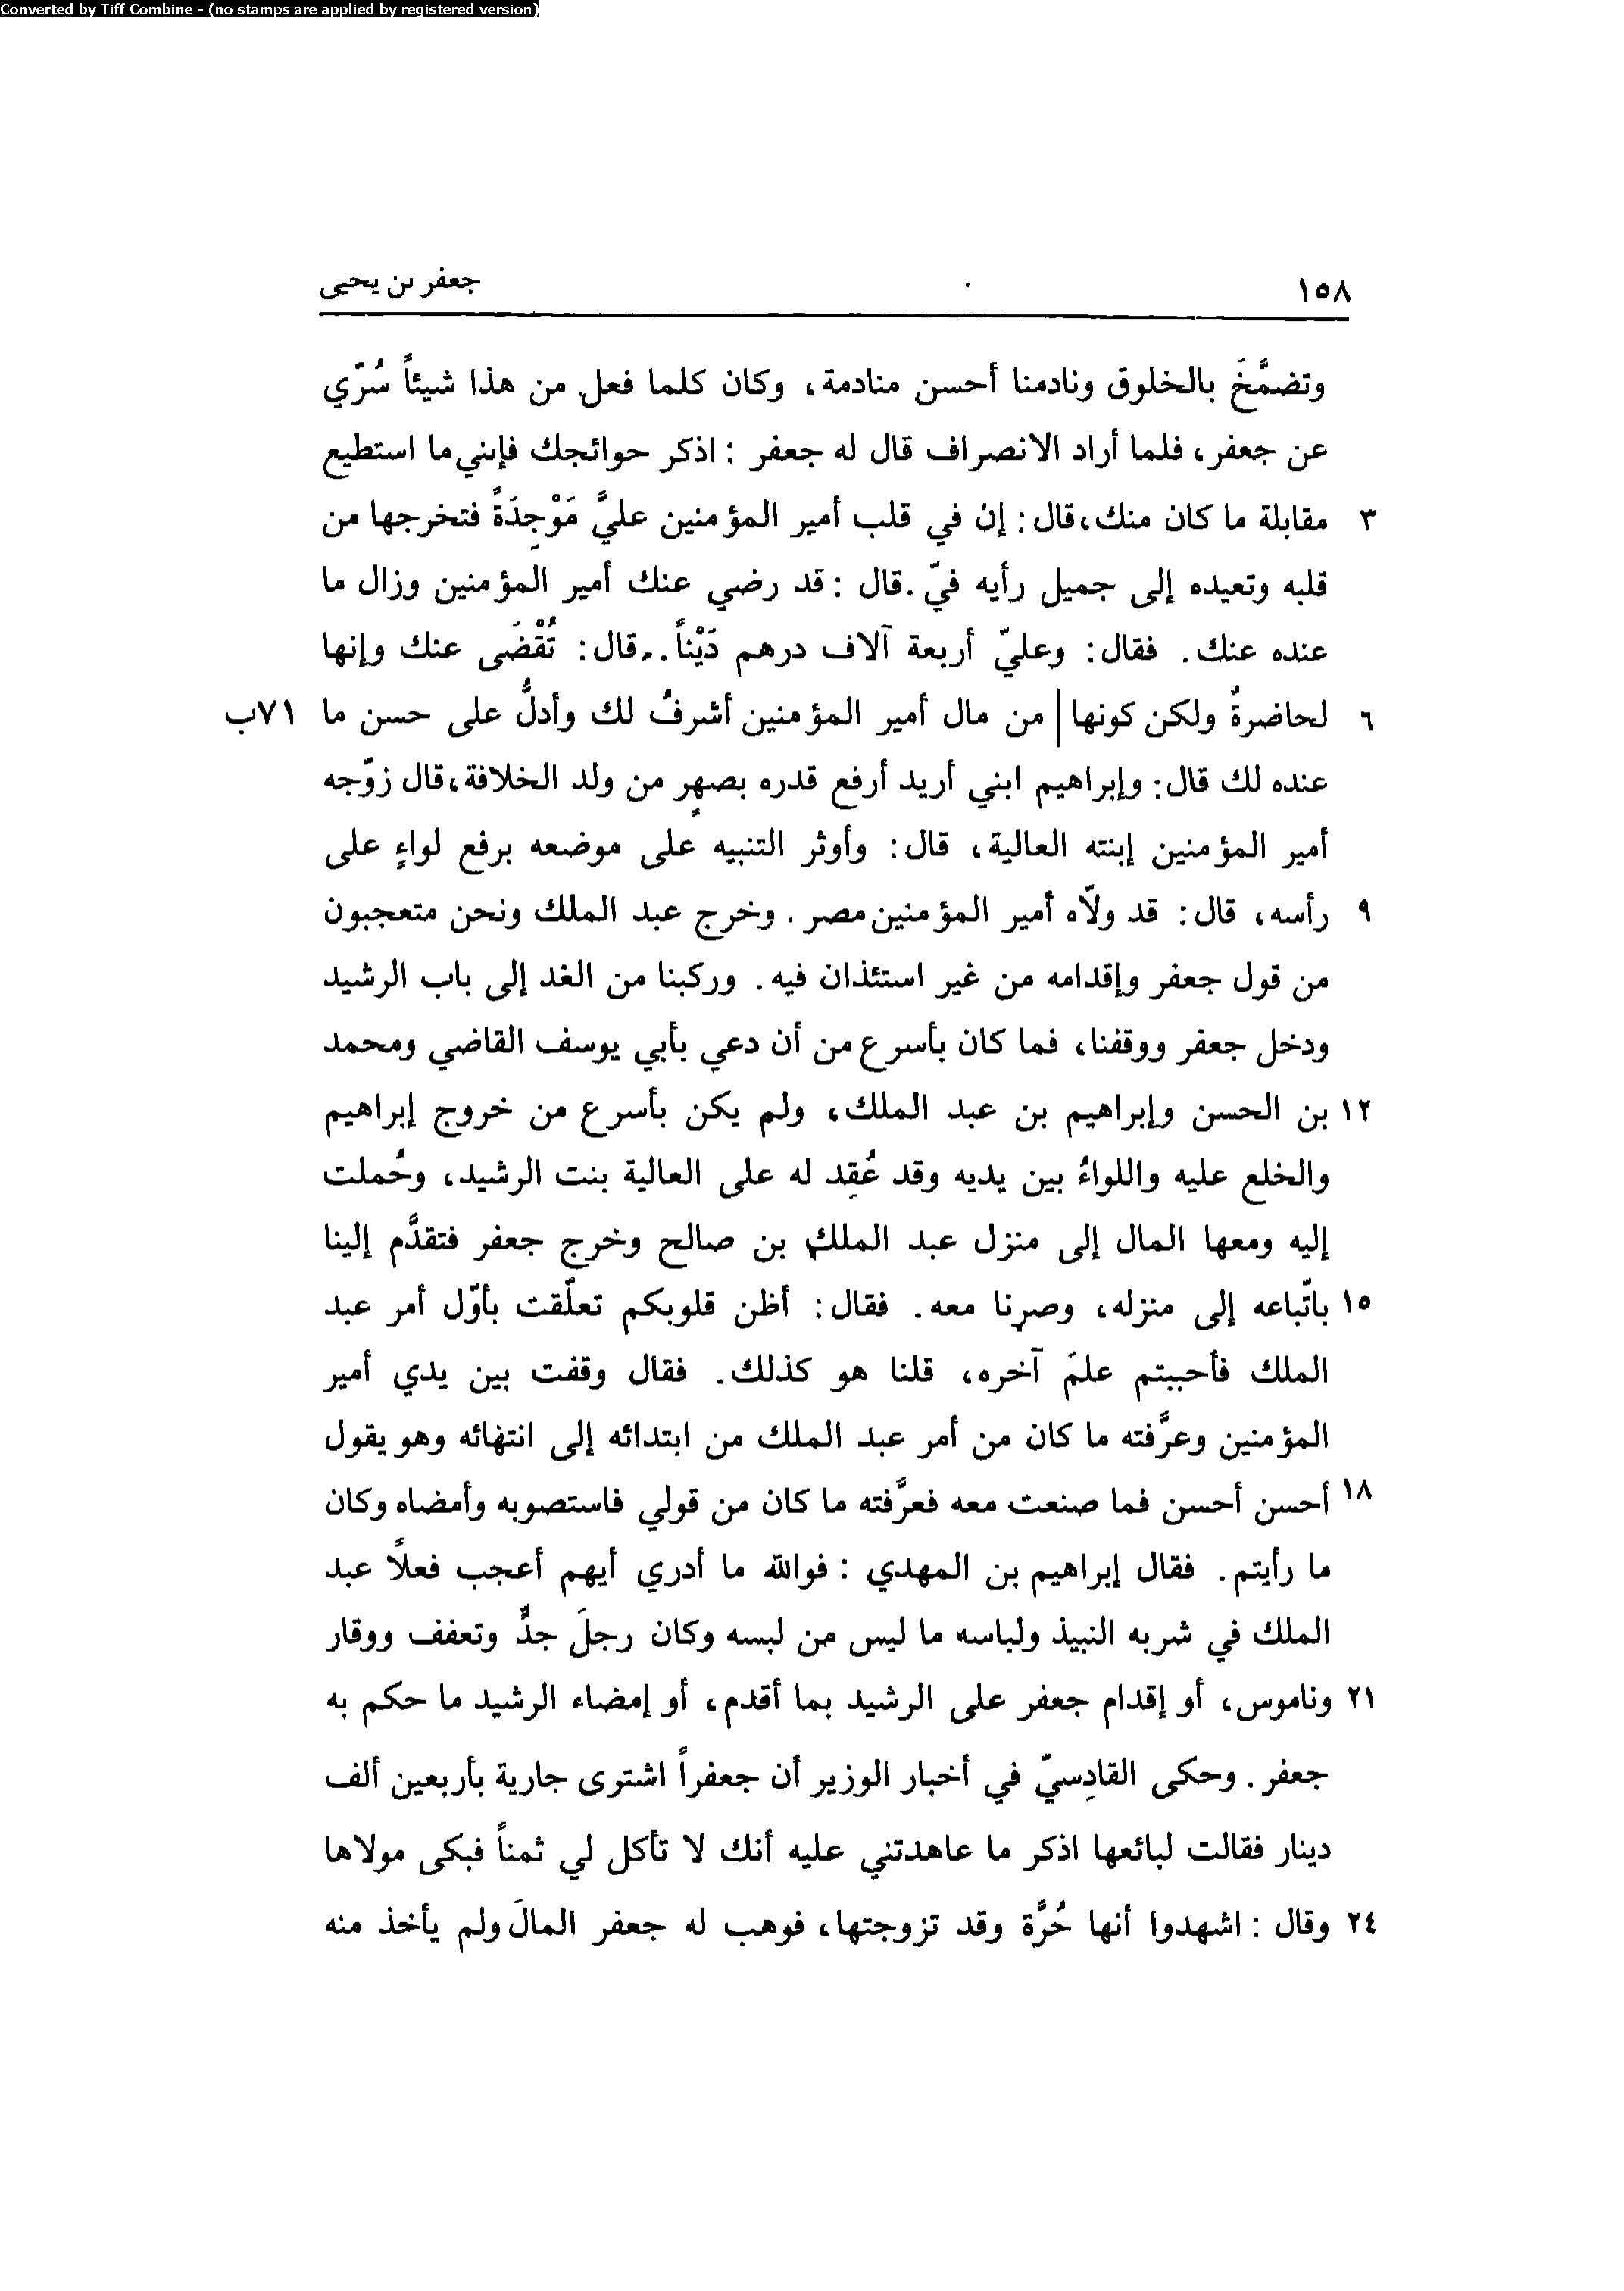 Converted by Tiff Combine - (no stamps are applied by registered version)
١٥٨ جعفر بن يحيى
وتضمَّخَ بالخلوق ونادمنا أحسن منادمة، وكان كلما فعل من هذا شيئاً سُرّي
عن جعفر، فلما أراد الانصراف قال له جعفر : اذكر حوائجك فإنني ما استطيع
٣ مقابلة ما كان منك، قال : إن في قلب أمير المؤمنين عليَّ مَوْجِدَةً فتخرجها من
قلبه وتعيده إلى جميل رأيه فيّ . قال : قد رضي عنك أمير المؤمنين وزال ما
عنده عنك . فقال : وعليّ أربعة آلاف درهم دَيْناً . . قال : تُقْضَى عنك وإنها
٦ لحاضرةُ ولكن كونها | من مال أمير المؤمنين أشرفُ لك وأدلُّ على حسن ما ٧١ب
عنده لك قال : وإبراهيم ابني أريد أرفع قدره بصهرٍ من ولد الخلافة، قال زوّجه
أمير المؤمنين إبنته العالية، قال : وأوثر التنبيه على موضعه برفع لواءٍ على
٩ رأسه، قال : قد ولّاه أمير المؤمنين مصر . وخرج عبد الملك ونحن متعجبون
من قول جعفر وإقدامه من غير استئذان فيه . وركبنا من الغد إلى باب الرشيد
ودخل جعفر ووقفنا، فما كان بأسرع من أن دعي بأبي يوسف القاضي ومحمد
١٢ بن الحسن وإبراهيم بن عبد الملك، ولم يكن بأسرع من خروج إبراهيم
والخلع عليه واللواءُ بين يديه وقد عُقِد له على العالية بنت الرشيد، وحُملت
إليه ومعها المال إلى منزل عبد الملك بن صالح وخرج جعفر فتقدَّم إلينا
١٥ باتّباعه إلى منزله، وصرنا معه . فقال : أظن قلوبكم تعلّقت بأوّل أمر عبد
الملك فأحببتم علمَ آخره، قلنا هو كذلك . فقال وقفت بين يدي أمير
المؤمنين وعرَّفته ما كان من أمر عبد الملك من ابتدائه إلى انتهائه وهو يقول
١٨ أحسن أحسن فما صنعت معه فعرَّفته ما كان من قولي فاستصوبه وأمضاه وكان
ما رأيتم . فقال إبراهيم بن المهدي : فوالله ما أدري أيهم أعجب فعلاً عبد
الملك في شربه النبيذ ولباسه ما ليس من لبسه وكان رجلَ جدٍّ وتعفف ووقار
٢١ وناموس، أو إقدام جعفر على الرشيد بما أقدم، أو إمضاء الرشيد ما حكم به
جعفر . وحكى القادِسيّ في أخبار الوزير أن جعفراً اشترى جارية بأربعين ألف
دينار فقالت لبائعها اذكر ما عاهدتني عليه أنك لا تأكل لي ثمناً فبكى مولاها
٢٤ وقال : اشهدوا أنها حُرَّة وقد تزوجتها، فوهب له جعفر المالَ ولم يأخذ منه